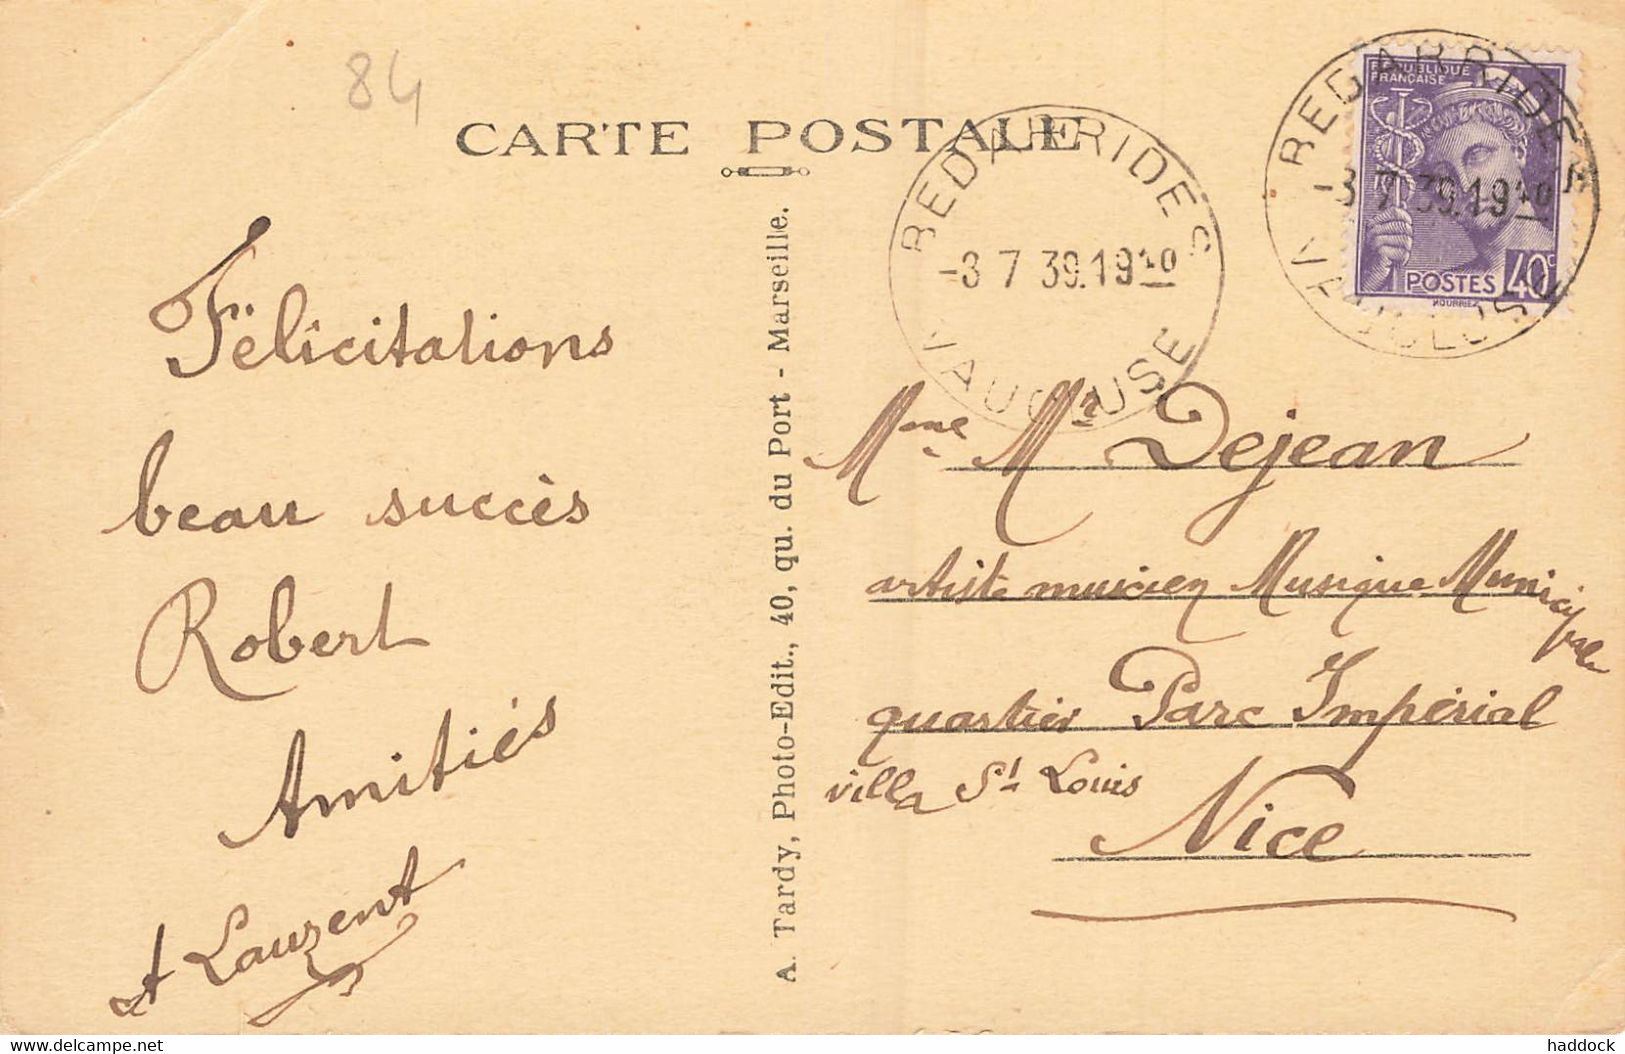 84
CARTE POSTALE
REPUBLIQUE
FRANÇAISE
POSTES 40c
MOURRIEZ
BEDARRIDES
-3 7 39.19 40
VAUCLUSE
BEDARRIDES
-3 7 39.19 40
VAUCLUSE
Félicitations
beau succès
Robert
Amitiés
A Laurent
A. Tardy, Photo-Edit., 40, qu. du Port - Marseille.
Mme Mr Dejean
artiste musicien Musique Municipale
quartier Parc Impérial
villa St Louis
Nice
www.delcampe.net
haddock